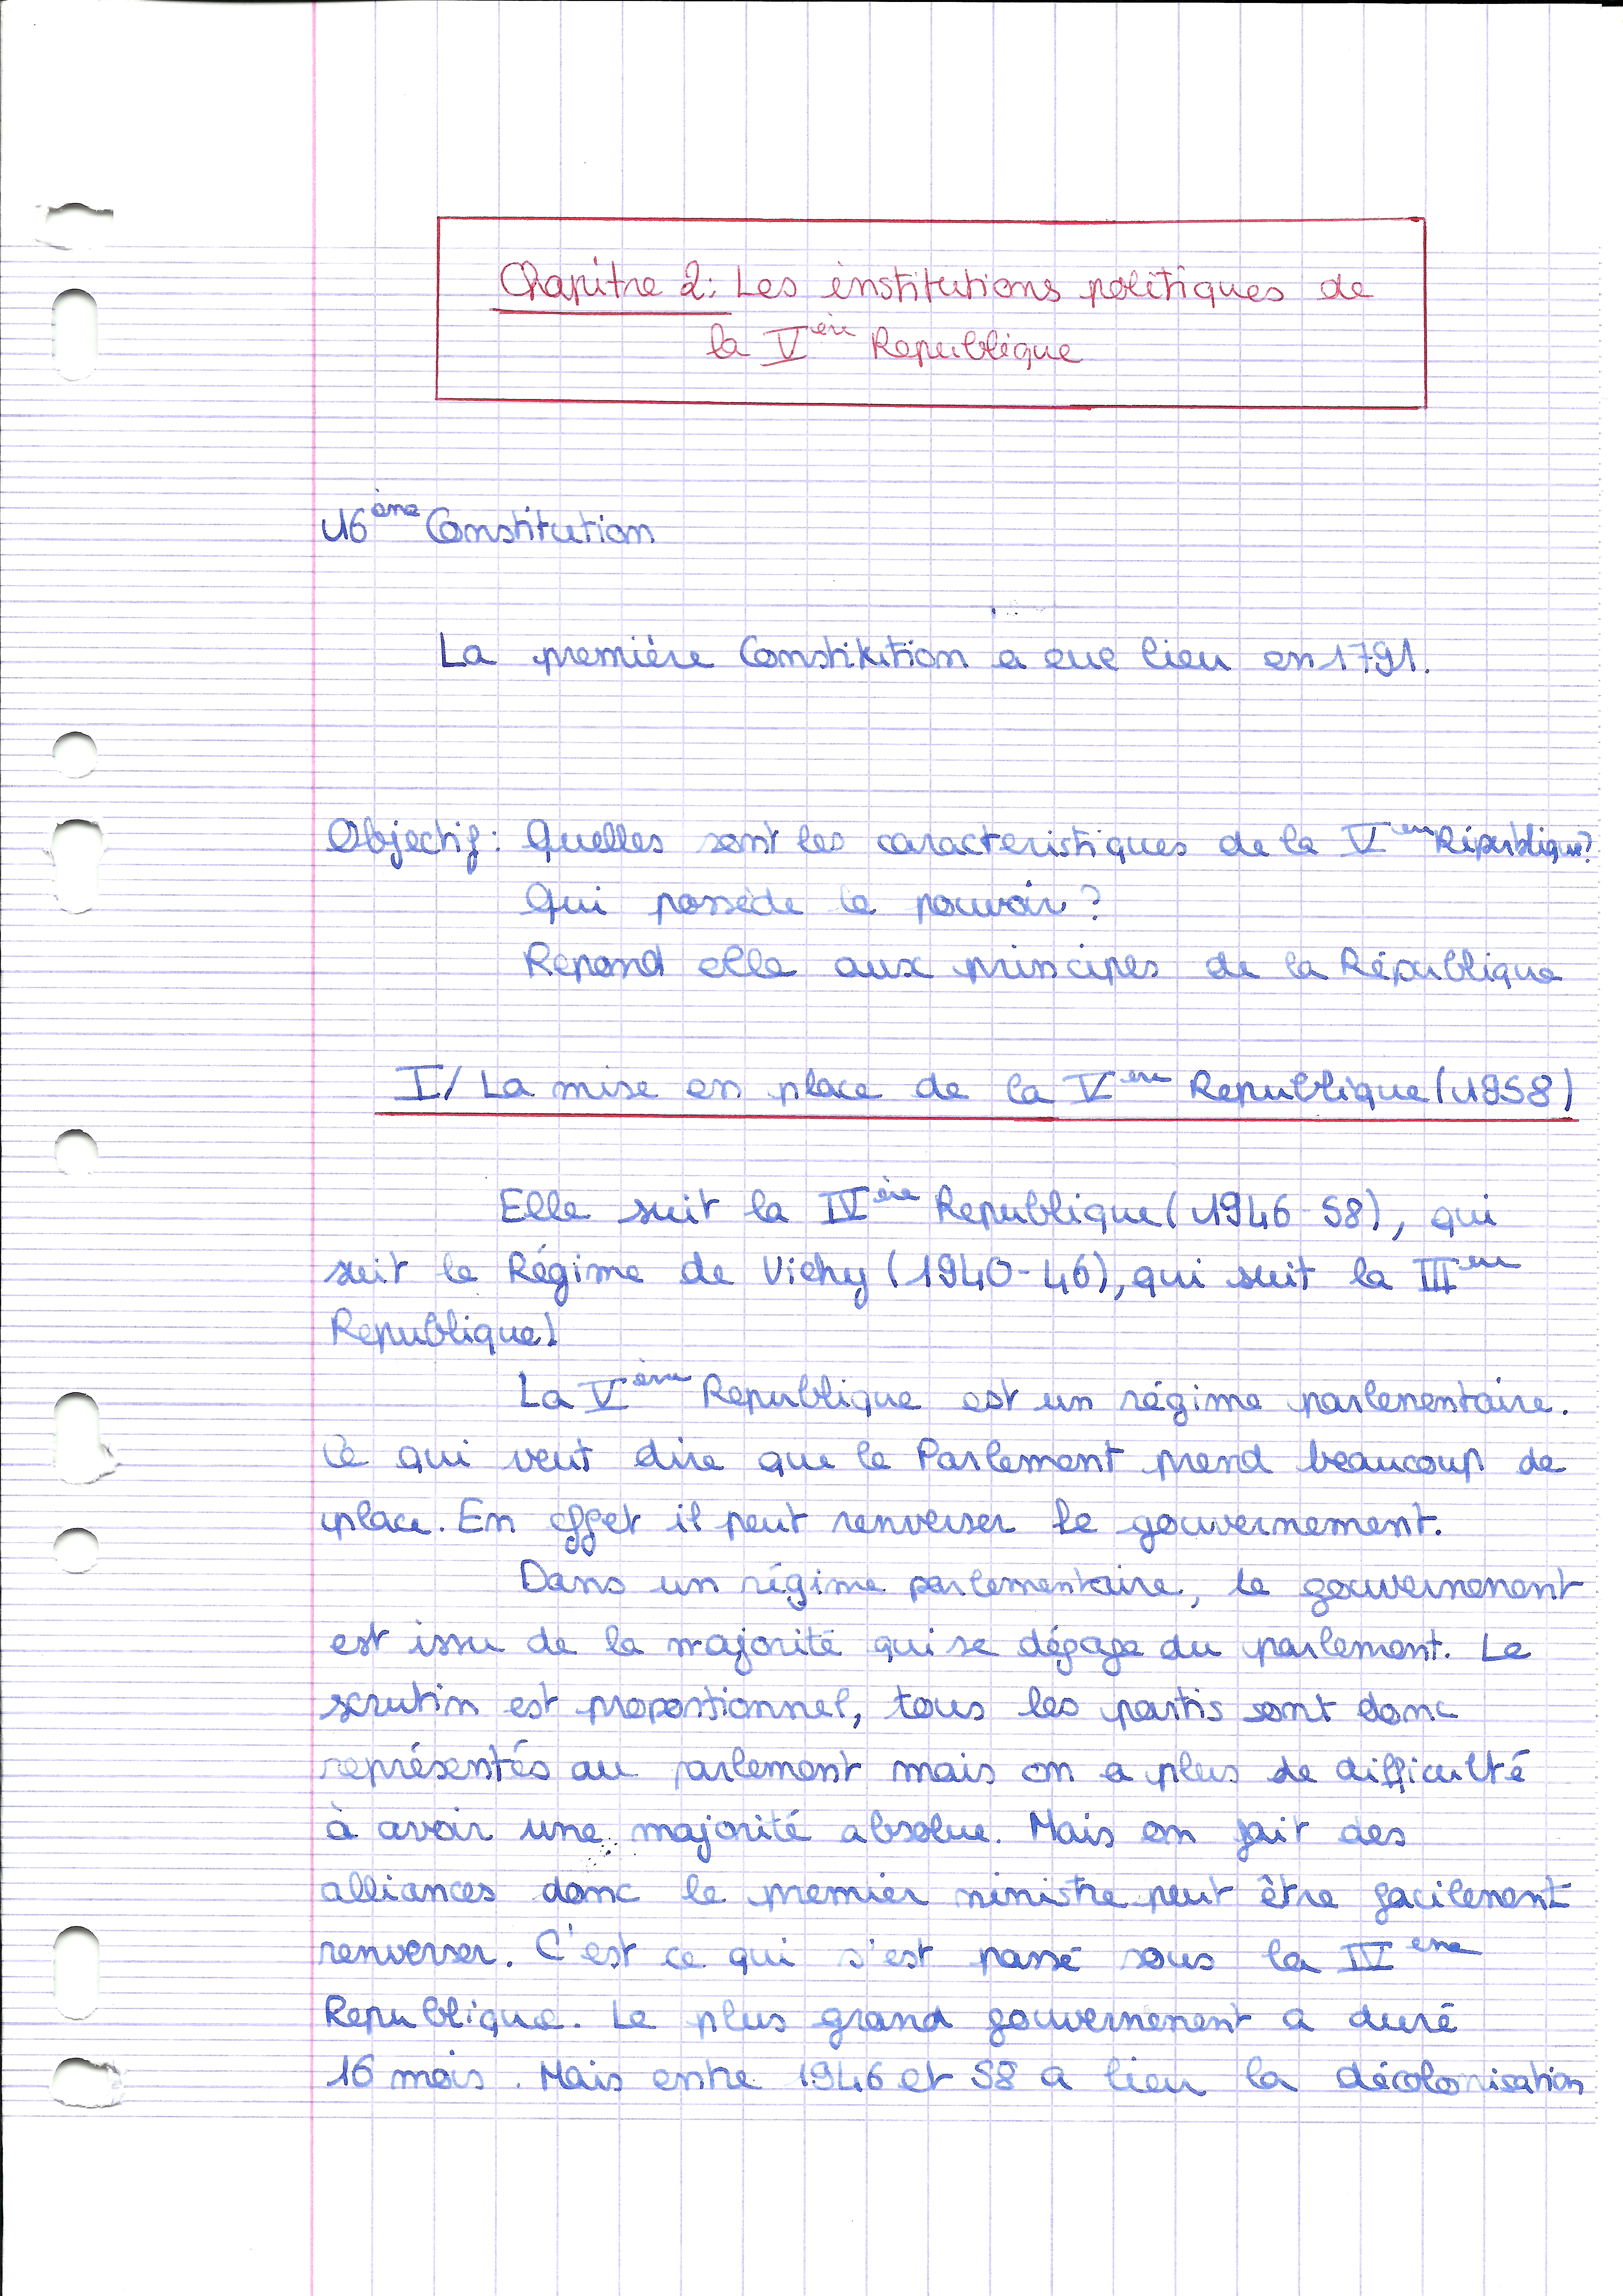 Chapitre 2: Les institutions politiques de
la Vème Republique
16ème Constitution
La première Constitution a eue lieu en 1791.
Objectif: Quelles sont les caracteristiques de la Vème République?
Qui possède le pouvoir?
Repond elle aux principes de la République
I/ La mise en place de la Vème Republique (1958)
Elle suit la IVème Republique (1946-58), qui
suit le Régime de Vichy (1940-46), qui suit la IIIème
Republique)
La Vème Republique est un régime parlementaire.
Ce qui veut dire que le Parlement prend beaucoup de
place. En effet il peut renverser le gouvernement.
Dans un régime parlementaire, le gouvernement
est issu de la majorité qui se dégage du parlement. Le
scrutin est proportionnel, tous les partis sont donc
représentés au parlement mais on a plus de difficulté
à avoir une majorité absolue. Mais on fait des
alliances donc le premier ministre peut être facilement
renverser. C'est ce qui s'est passé sous la IVème
Republique. Le plus grand gouvernement a duré
16 mois. Mais entre 1946 et 58 a lieu la décolonisation